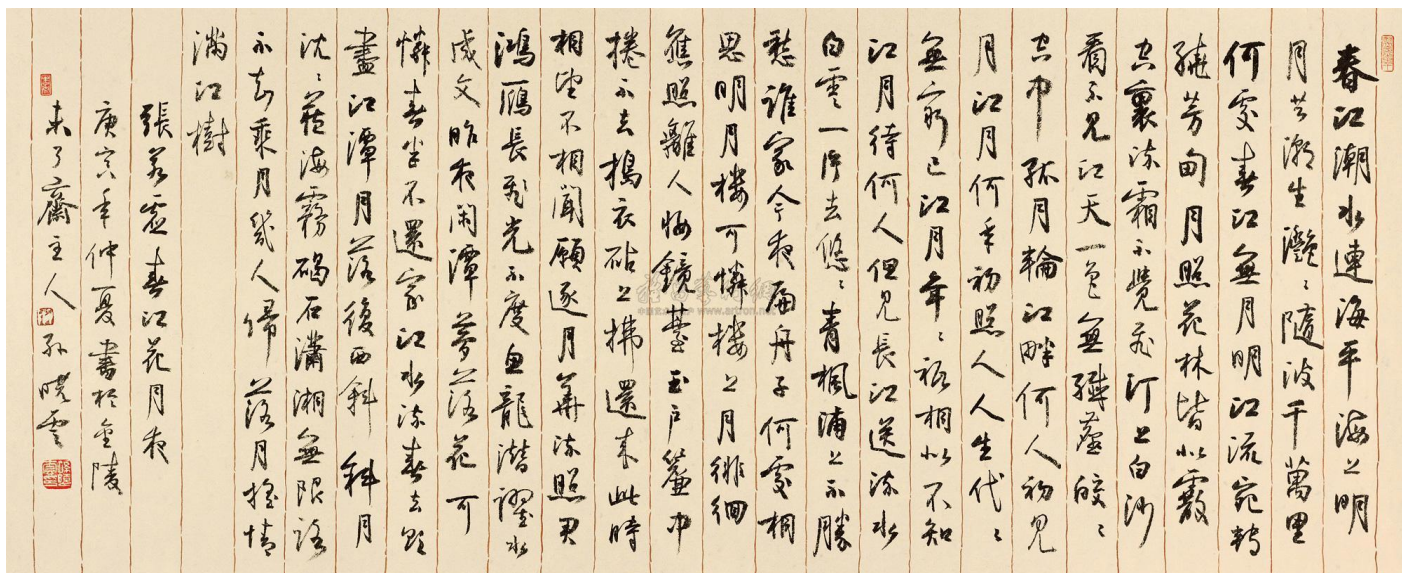 春江潮水連海平海上明
月共潮生灩〻隨波千萬里
何處春江無月明江流宛轉
繞芳甸月照花林皆似霰
空裏流霜不覺飛汀上白沙
看不見江天一色無纖塵皎〻
空中孤月輪江畔何人初見
月江月何年初照人人生代〻
無窮已江月年〻祗相似不知
江月待何人但見長江送流水
白雲一片去悠〻青楓浦上不勝
愁誰家今夜扁舟子何處相
思明月楼可憐楼上月徘徊
應照離人妝鏡臺玉戶簾中
捲不去搗衣砧上拂還來此時
相望不相聞願逐月華流照君
鴻鴈長飛光不度魚龍潛躍水
成文昨夜閑潭夢落花可
憐春半不還家江水流春去欲
盡江潭月落復西斜斜月
沈〻藏海霧碣石瀟湘無限路
不知乘月幾人歸落月搖情
滿江樹
張若虛春江花月夜
庚寅年仲夏書於金陵
未了齋主人 孫曉雲
www.artron.net